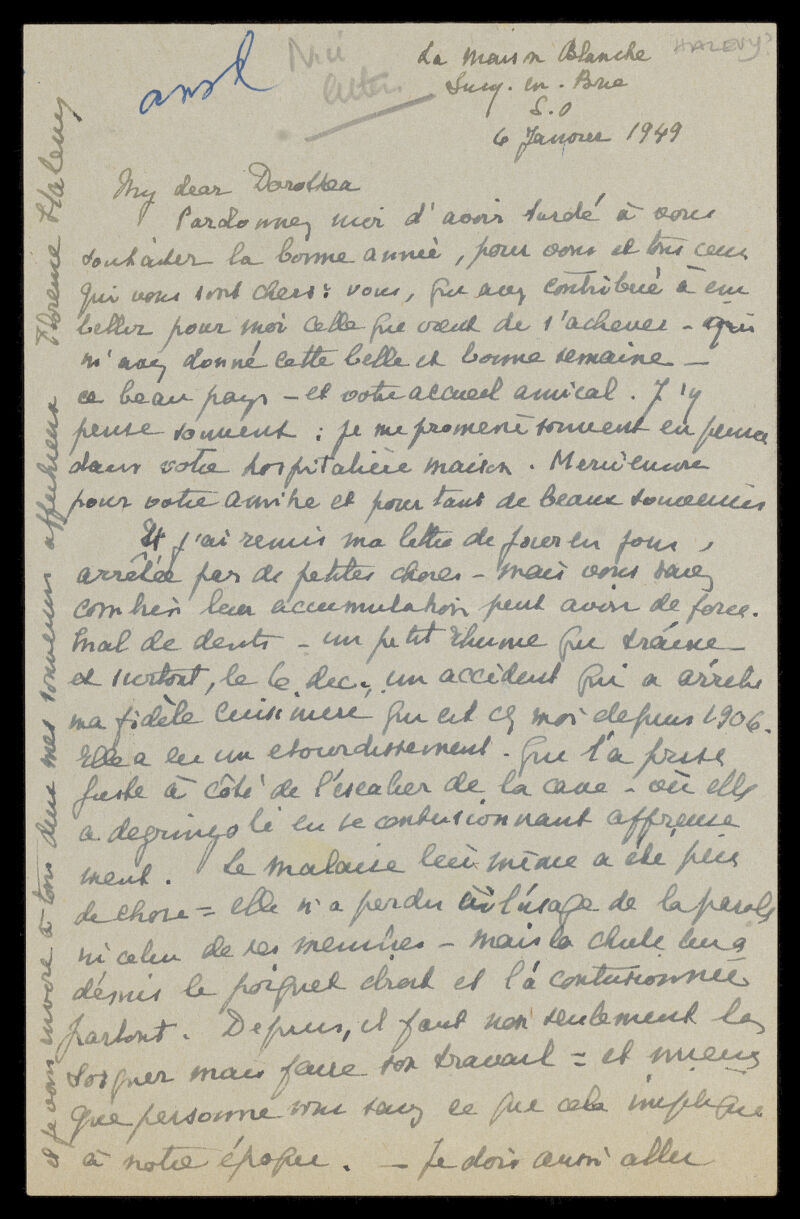 ansd
Nice
letter
HALEVY?
La Maison Blanche
Sucy-en-Brie
S.O
6 Janvier 1949
My dear Dorothea
Pardonnez moi d'avoir tardé à vous
souhaiter la bonne année, pour vous et tous ceux
qui vous sont chers : vous, qui avez contribué à em
bellir pour moi celle qui vient de s'achever - qui
m'avez donné cette belle et bonne semaine -
ce beau pays - et votre accueil amical. J'y
pense souvent : je me promène souvent en pensée
dans votre hospitalière maison. Merci encore
pour votre amitié et pour tant de beaux souvenirs
Et j'ai remis ma lettre de jour en jour,
arrêtée par de petites choses - mais vous savez
combien leur accumulation peut avoir de force.
Mal de dents - un petit rhume qui traîne -
et surtout, le 6 dec., un accident qui a arrêté
ma fidèle cuisinière qui est chez moi depuis 1906.
Elle a eu un etourdissement. Qui l'a prise
juste à côté de l'escalier de la cave - où elle
a degringolé en se contusionnant affreuse
ment. Le malaise lui même a été peu
de chose = elle n'a perdu ni l'usage de la parole
ni celui de ses membres - mais la chute lui a
démis le poignet droit et l'a contusionnée
partout. Depuis, il faut non seulement la
soigner mais faire son travail = et mieux
que personne vous savez ce que cela implique
à notre époque. - Je dois aussi aller
et je vous envoie à tous deux mes souvenirs affectueux Florence Halevy